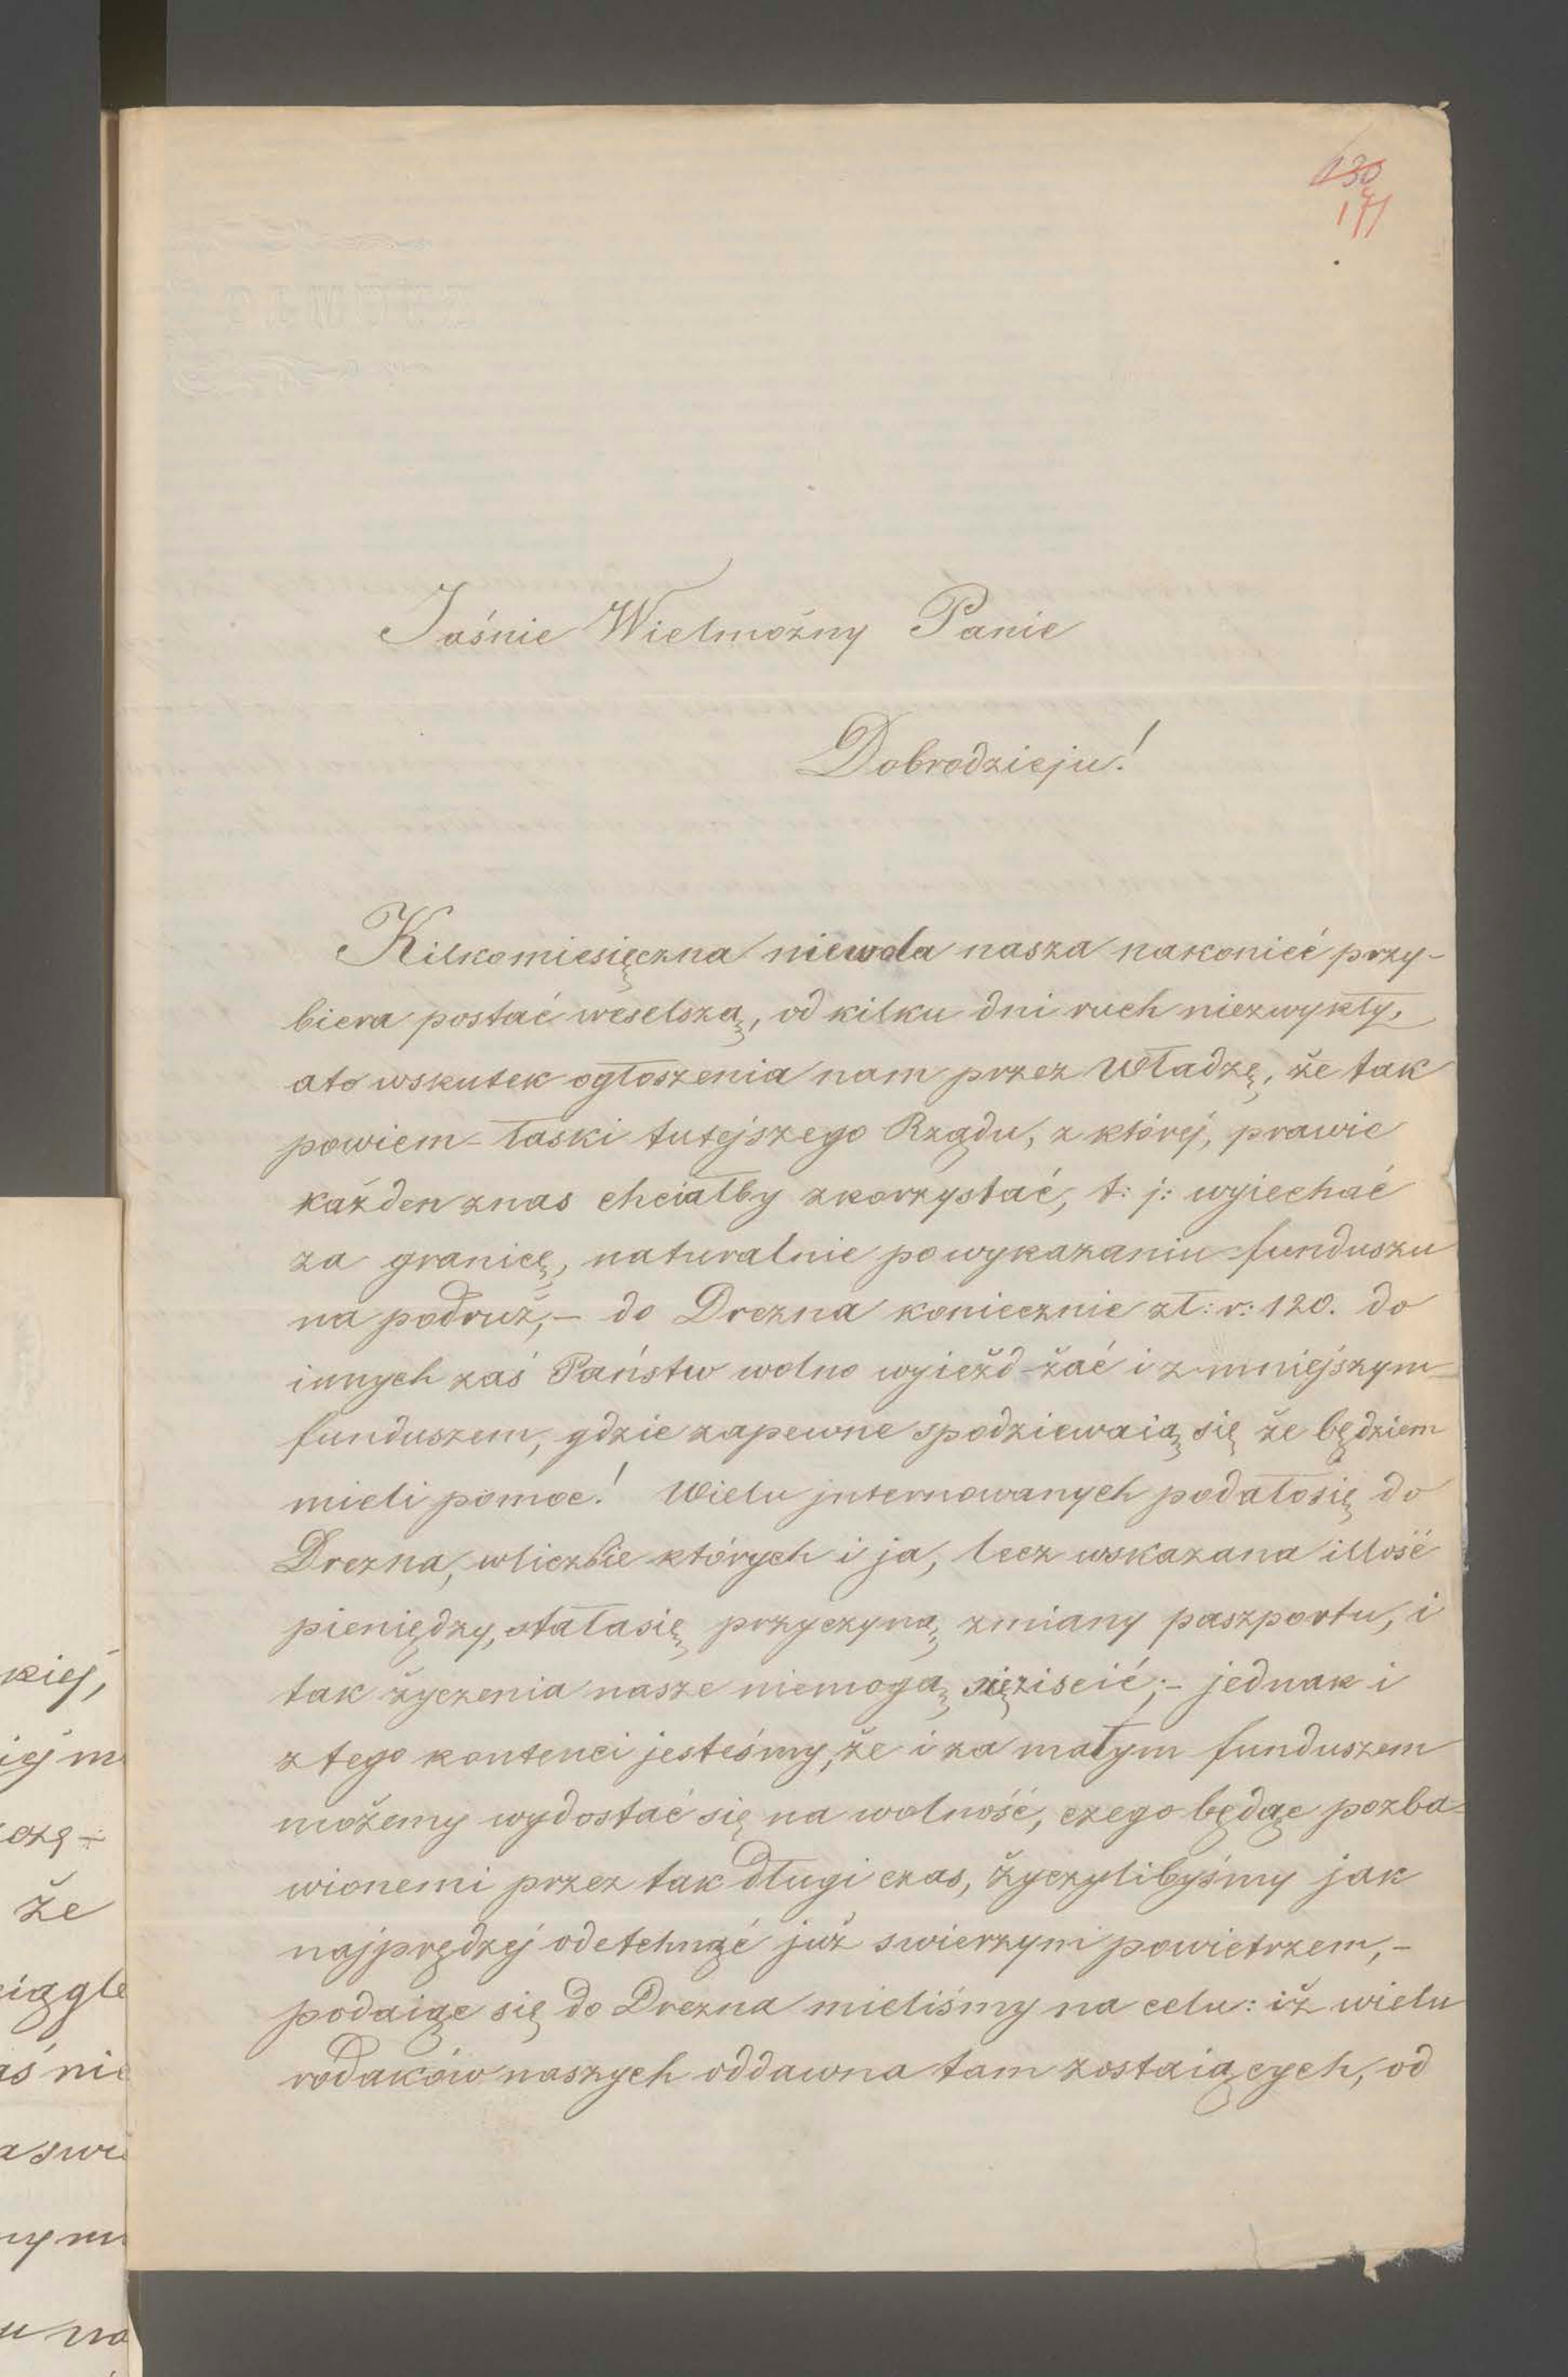 130
171
Jaśnie Wielmożny Panie
Dobrodzieju!
Kilkomiesięczna niewola nasza nakonieć przy-
biera postać weselszą, od kilku dni ruch niezwykły,
ato wskutek ogłoszenia nam przez Władzę, że tak
powiem - łaski tutejszego Rządu, z której, prawie
każden znas chciałby zkorzystać, t: j: wyiechać
za granicę, naturalnie powykazaniu funduszu
na podruż, - do Drezna koniecznie zł: r: 120. do
innych zaś Państw wolno wyieżd-żać i z mniejszym
funduszem, gdzie zapewne spodziewaią się że będziem
mieli pomoc! Wielu internowanych podałosię do
Drezna, wliczbie których i ja, lecz wskazana illość
pieniędzy, stałasię przyczyną zmiany paszportu, i
tak życzenia nasze niemogą sięziscić; - jednak i
ztego kontenci jesteśmy, że i za małym funduszem
możemy wydostać się na wolność, czego będąc pozba-
wionemi przez tak długi czas, życzylibyśmy jak
najprędzej odetchnąć już swierzym powietrzem, -
podaiąc się do Drezna mieliśmy na celu: iż wielu
rodaków naszych oddawna tam zostaiących, od
kiej,
iej m
że
ciągle
aś nie
u na